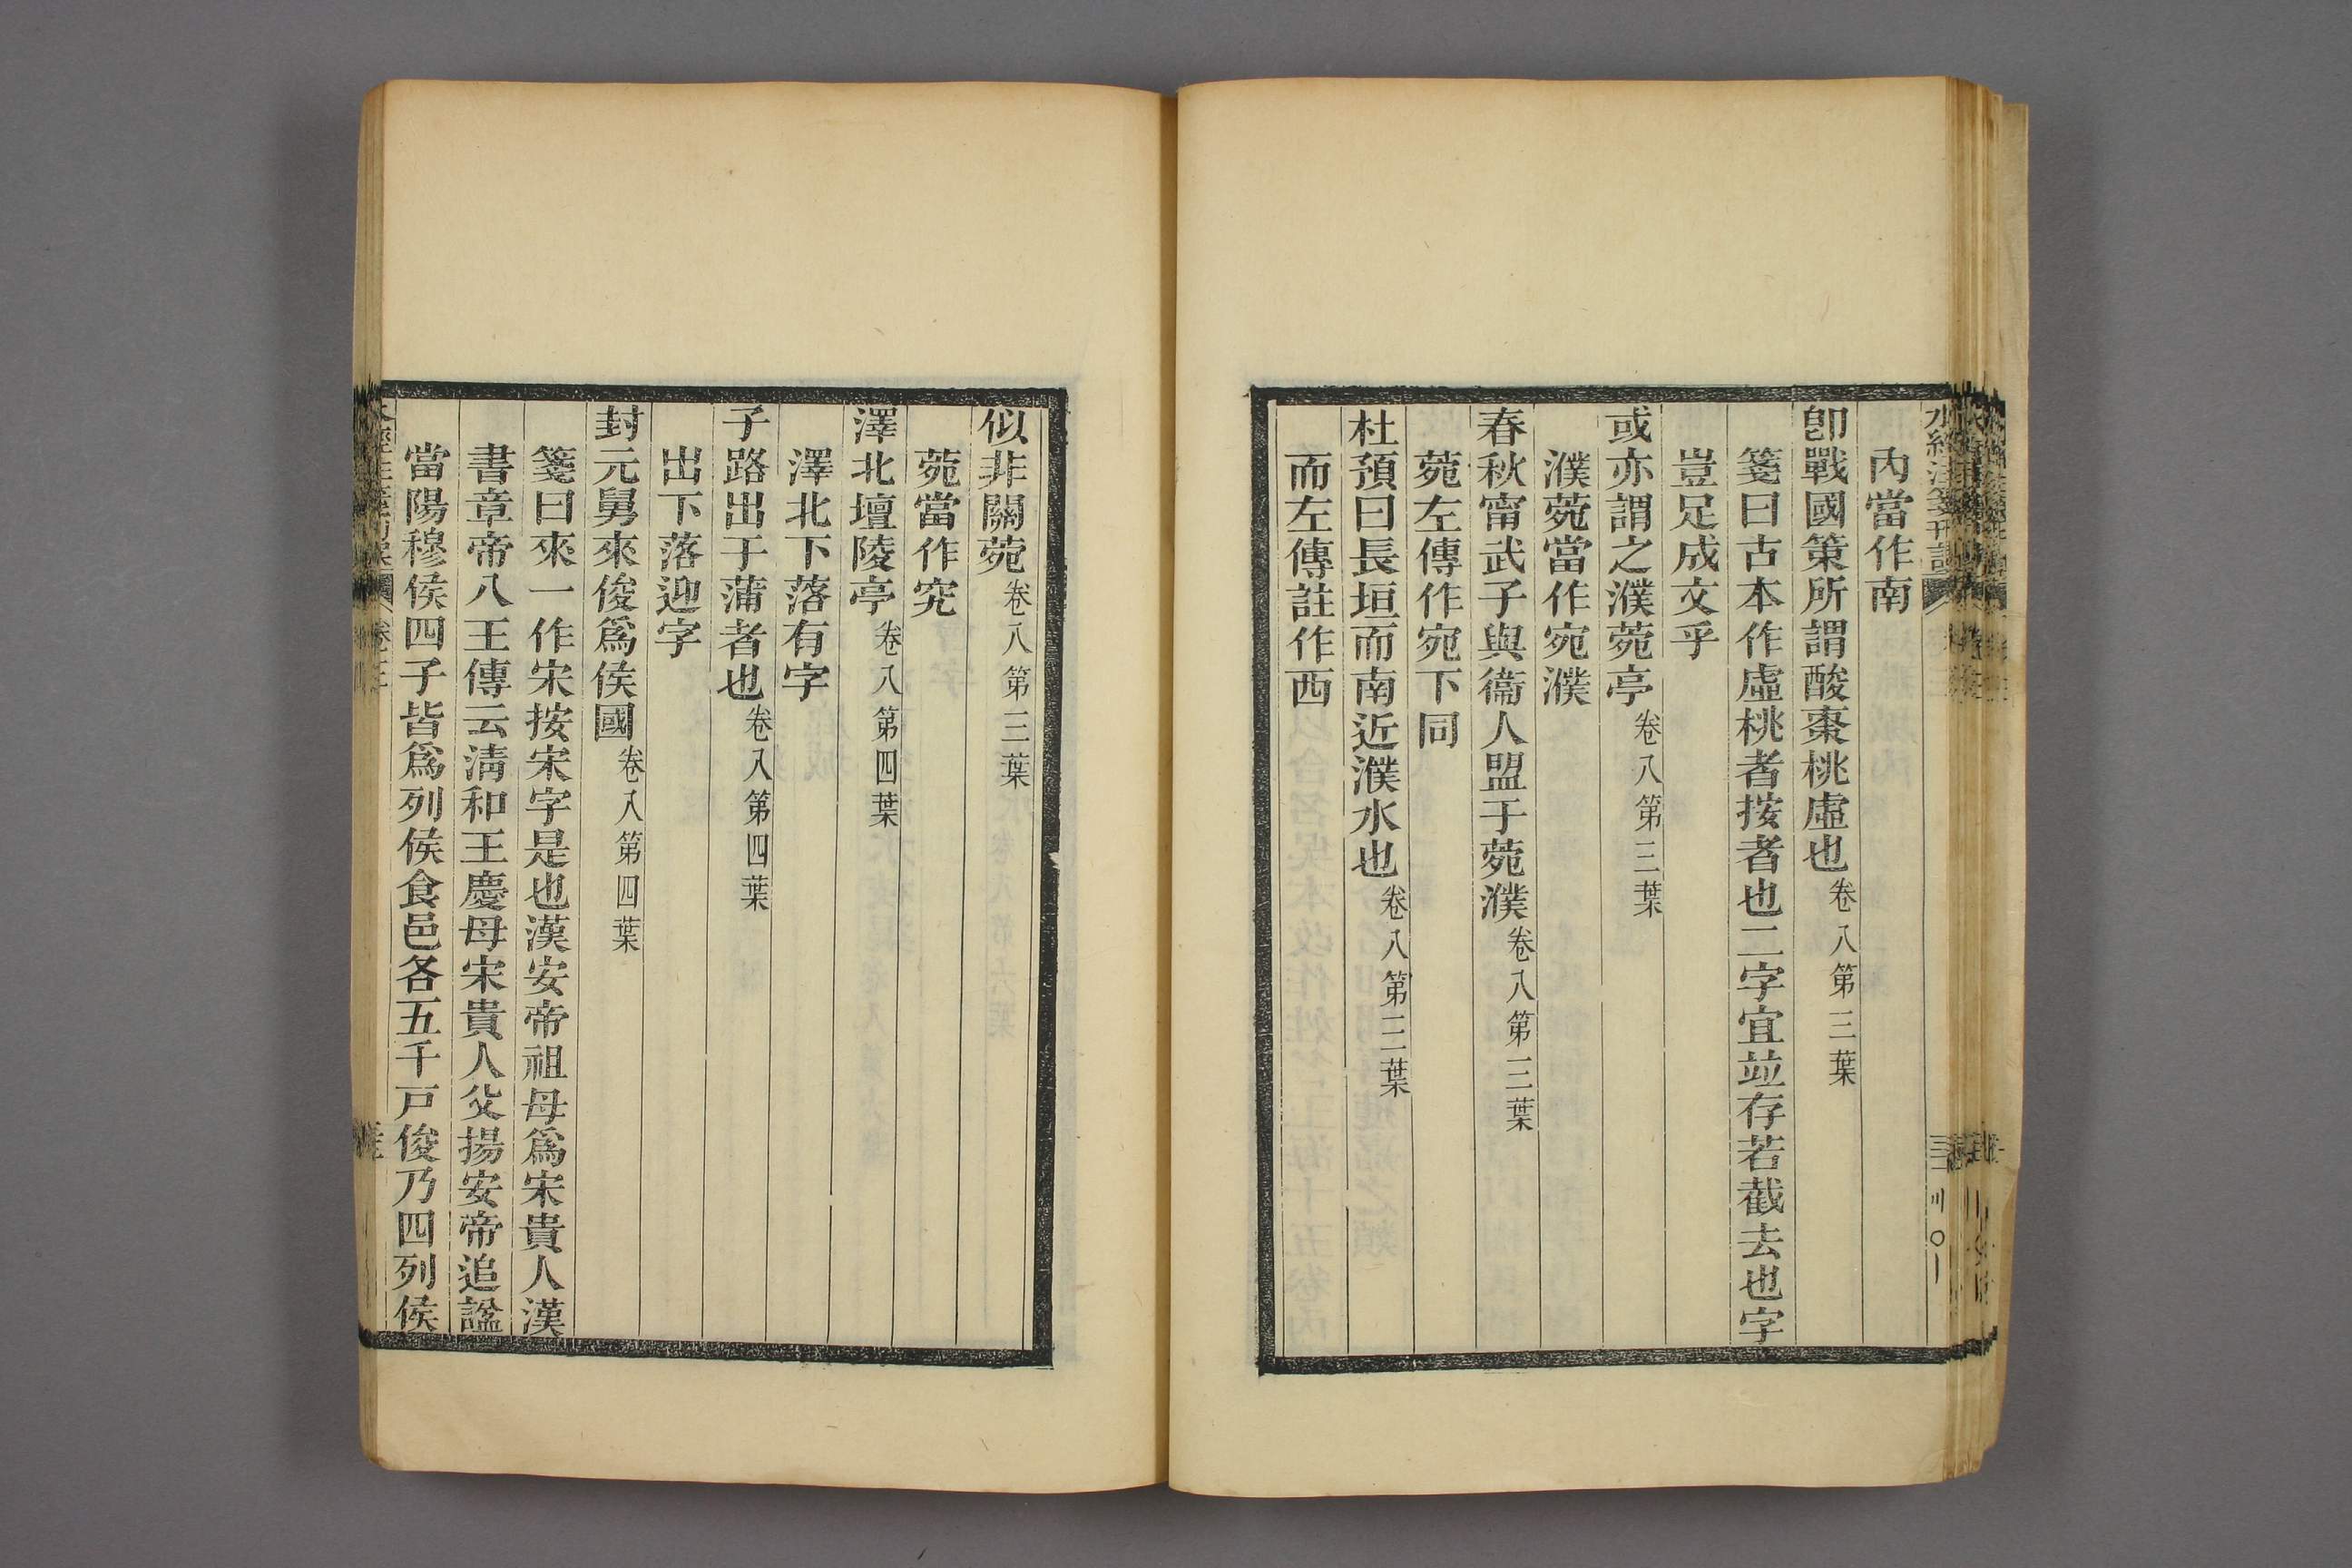 水經注箋刊誤
內當作南
卽戰國策所謂酸棗桃虛也卷八第三葉
箋曰古本作虛桃者按者也二字宜並存若截去也字
豈足成文乎
或亦謂之濮菀亭卷八第三葉
濮菀當作宛濮
春秋甯武子與衞人盟于菀濮卷八第三葉
菀左傳作宛下同
杜預曰長垣而南近濮水也卷八第三葉
而左傳註作西
似非關菀卷八第三葉
菀當作究
澤北壇陵亭卷八第四葉
澤北下落有字
子路出于蒲者也卷八第四葉
出下落迎字
封元舅來俊爲侯國卷八第四葉
箋曰來一作宋按宋字是也漢安帝祖母爲宋貴人漢
書章帝八王傳云淸和王慶母宋貴人父揚安帝追諡
當陽穆侯四子皆爲列侯食邑各五千戸俊乃四列侯